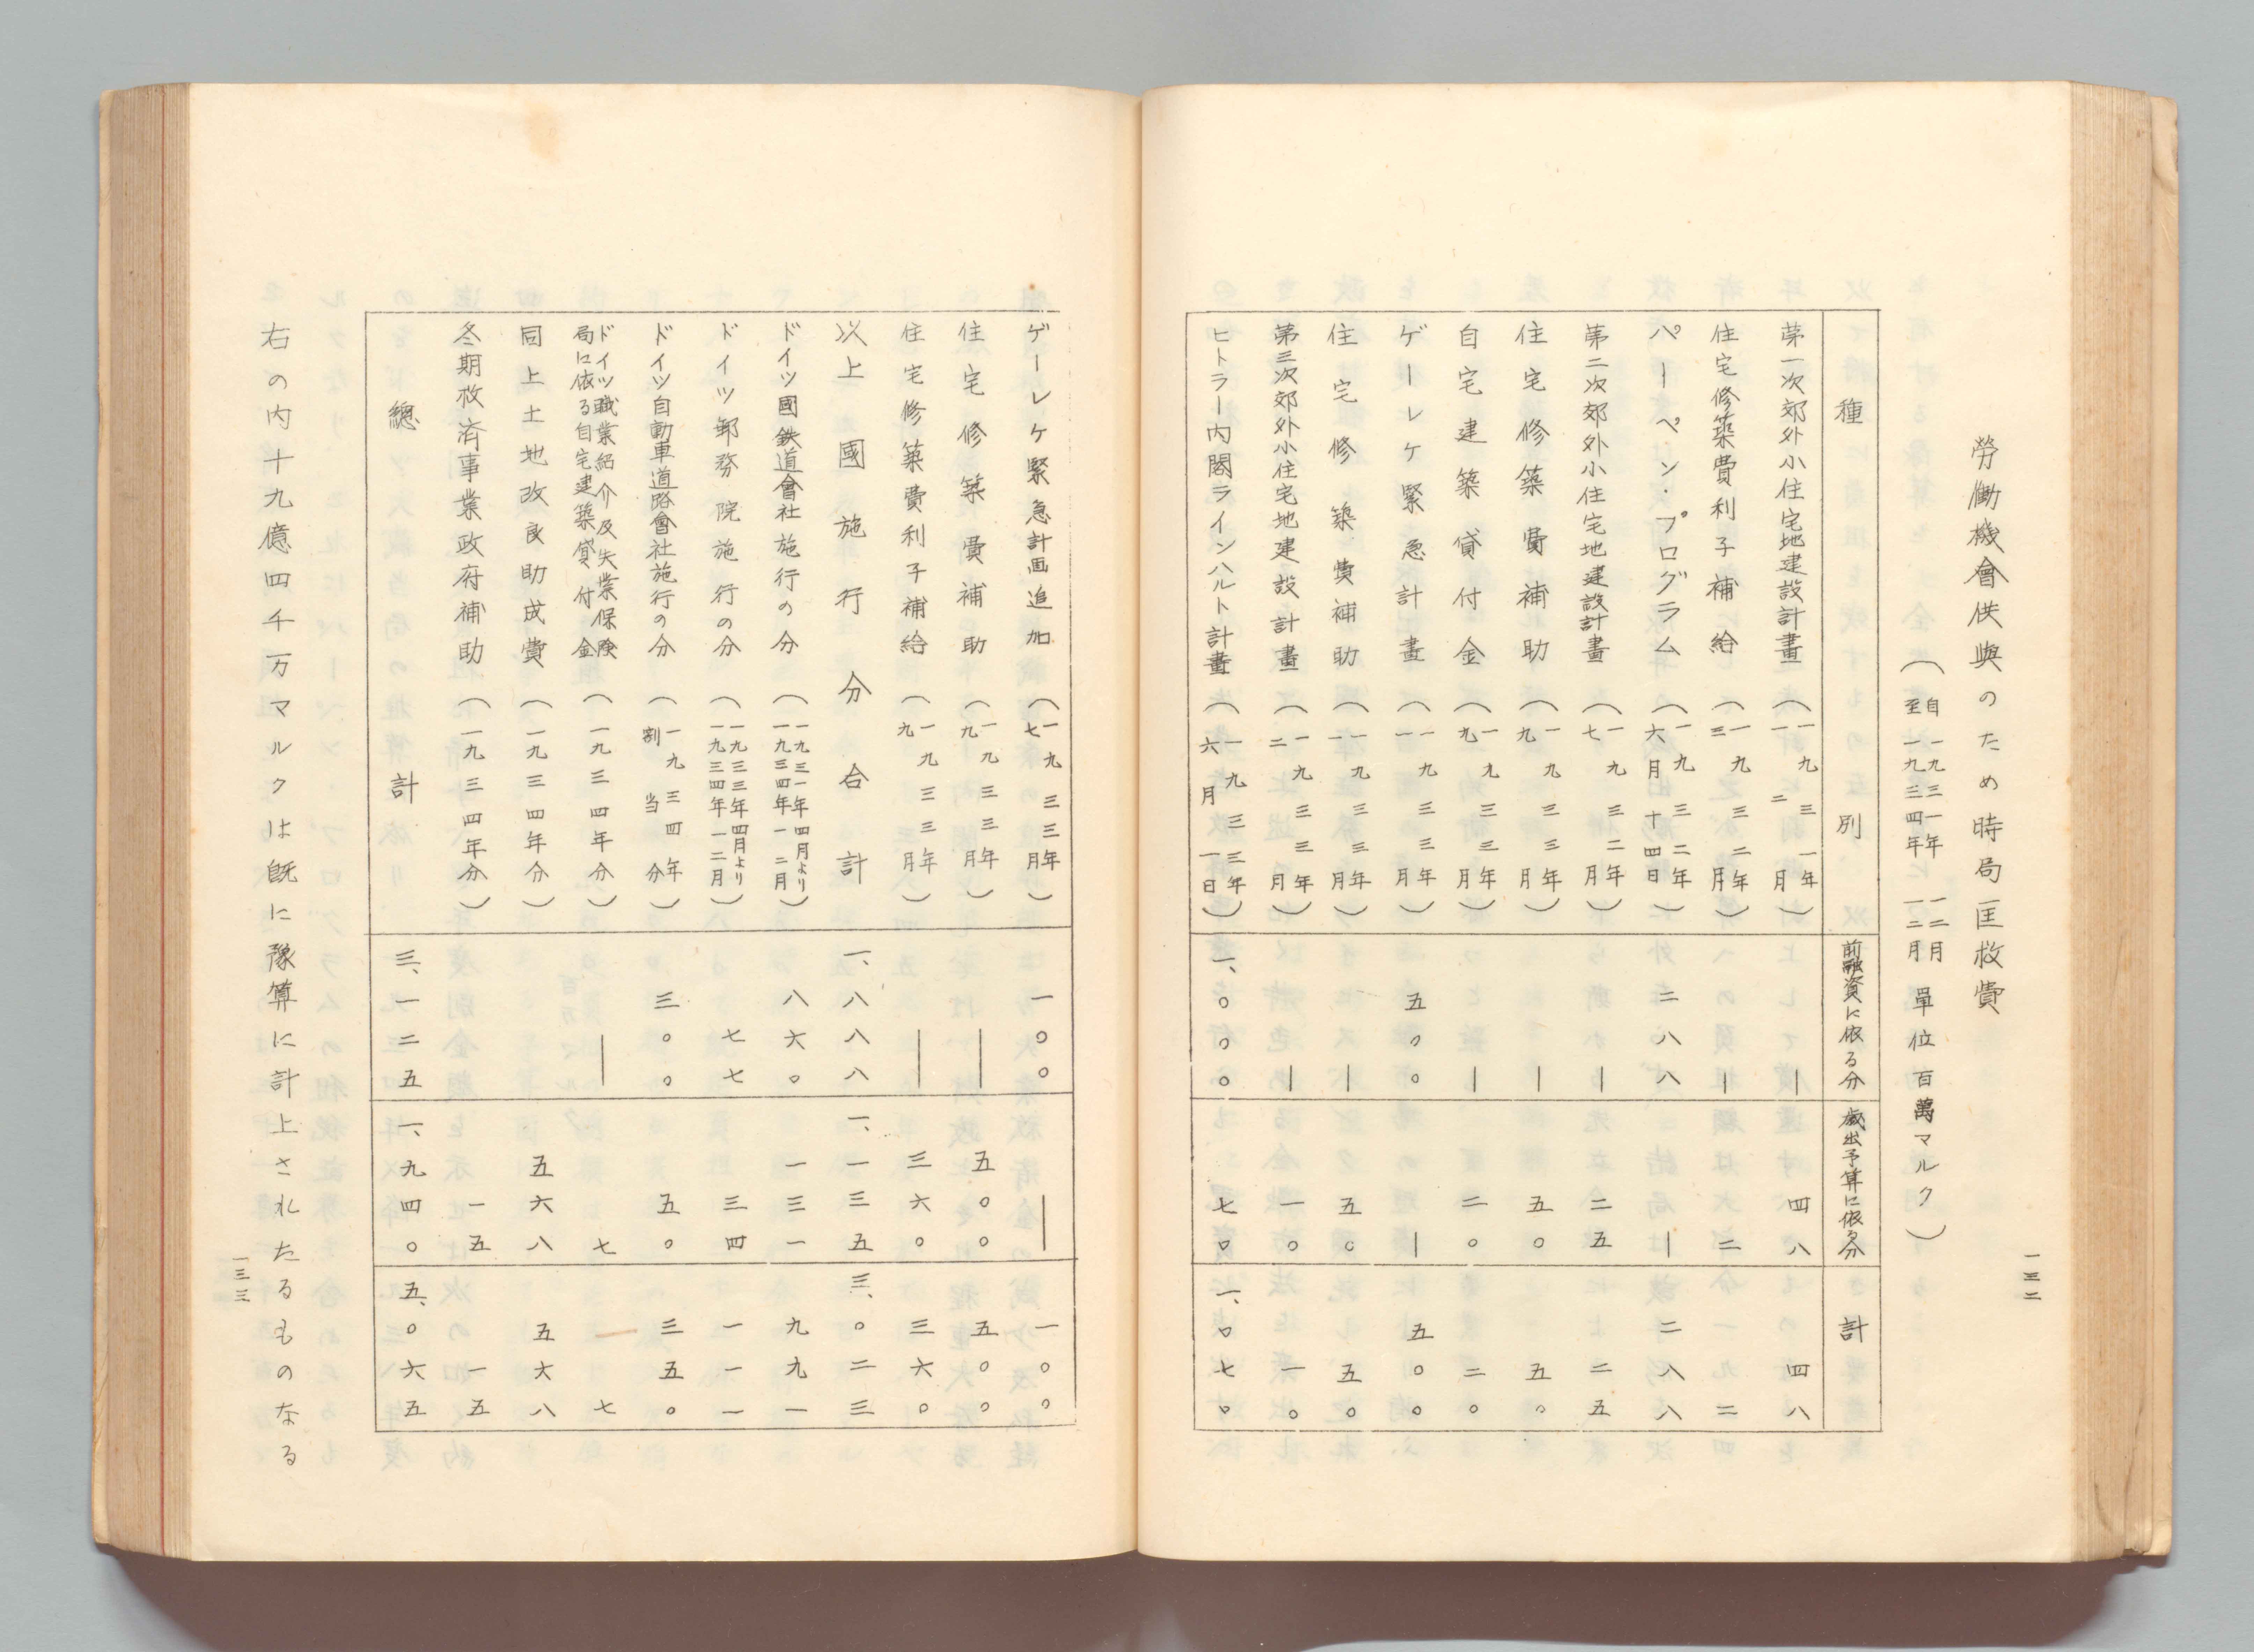 一三二
勞働機會供與のため時局匡救費
（自一九三一年一二月
至一九三四年一二月 單位百萬マルク）
種別 前融資に依る分 歳出予算に依る分 計
第一次郊外小住宅地建設計畫（一九三一年一二月） — 四八 四八
住宅修築費利子補給（一九三二年三月） — 二 二
パーペン・プログラム（一九三二年六月十四日） 二八八 — 二八八
第二次郊外小住宅地建設計畫（一九三二年七月） — 二五 二五
住宅修築費補助（一九三三年九月） — 五〇 五〇
自宅建築貸付金（一九三三年九月） — 二〇 二〇
ゲーレケ緊急計畫（一九三三年一月） 五〇〇 — 五〇〇
住宅修築費補助（一九三三年一月） — 五〇 五〇
第三次郊外小住宅地建設計畫（一九三三年二月） — 一〇 一〇
ヒトラー内閣ラインハルト計畫（一九三三年六月一日） 一、〇〇〇 七〇 一、〇七〇
ゲーレケ緊急計画追加（一九三三年七月） 一〇〇 — 一〇〇
住宅修築費補助（一九三三年九月） — 五〇〇 五〇〇
住宅修築費利子補給（一九三三年九月） — 三六〇 三六〇
以上國施行分合計 一、八八八 一、一三五 三、〇二三
ドイツ國鉄道會社施行の分（一九三一年四月より一九三四年一二月） 八六〇 一三一 九九一
ドイツ郵務院施行の分（一九三三年四月より一九三四年一二月） 七七 三四 一一一
ドイツ自動車道路會社施行の分（一九三四年割当分） 三〇〇 五〇 三五〇
ドイツ職業紹介及失業保険局に依る自宅建築貸付金（一九三四年分） — 七 七
同上土地改良助成費（一九三四年分） 五六八 五六八
冬期救済事業政府補助（一九三四年分） 一五 一五
總計 三、一二五 一、九四〇 五、〇六五
右の内十九億四千万マルクは既に豫算に計上されたるものなる
一三三